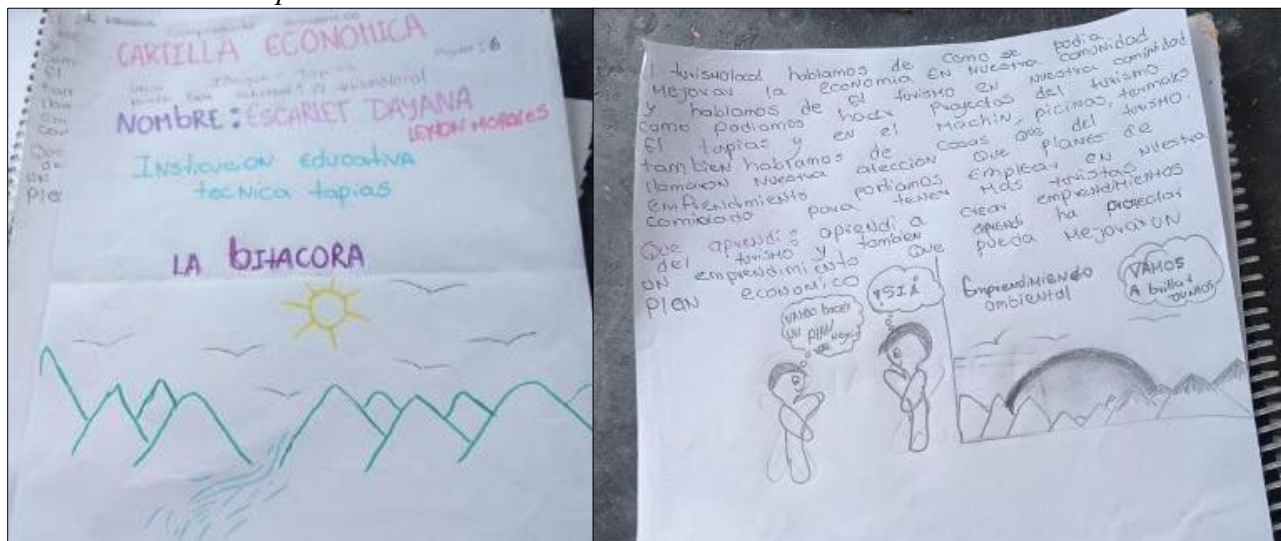 CARTILLA ECONOMICA
6
NOMBRE: ESCARLET DAYANA
LEYTON MORALES
Institucion Educativa
tecnica tapias
LA BITACORA
turismo local hablamos de como se podia
Mejorar la economia EN NUESTRA COMUNIDAD
y hablamos de El turismo en nuestra comunidad
como podiamos hacer Proyectos del turismo
El tapias y en el Machin, picinas, termales
tambien hablamos de cosas que del turismo.
llamaron nuestra atección que planes de
emprendimiento podiamos emplear en nuestra
para tener mas turistas
Que aprendi: aprendi a crear emprendimientos
del turismo y tambien aprendi ha proyectar
UN emprendimiento que pueda Mejorar UN
PlaN economico
VAMOS hacer
UN PlAN
¡SI!
EmprendiMiENdo
ambiental
VAMOS
A brillar
JUNTOS